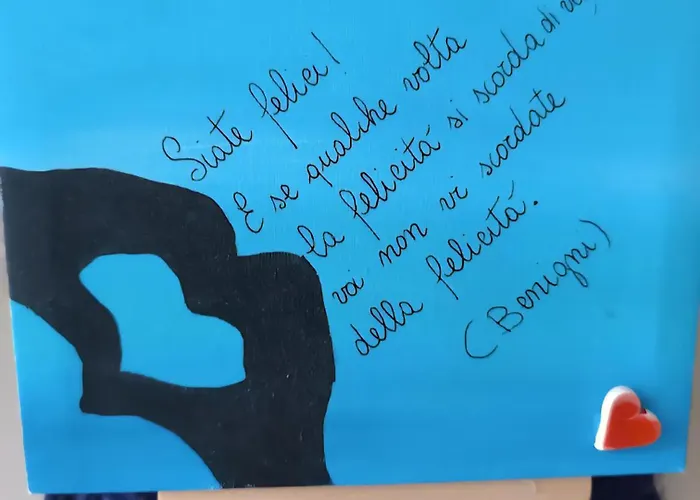 Siate felici!
E se qualche volta
la felicità si scorda di
voi non vi scordate
della felicità.
(Benigni)